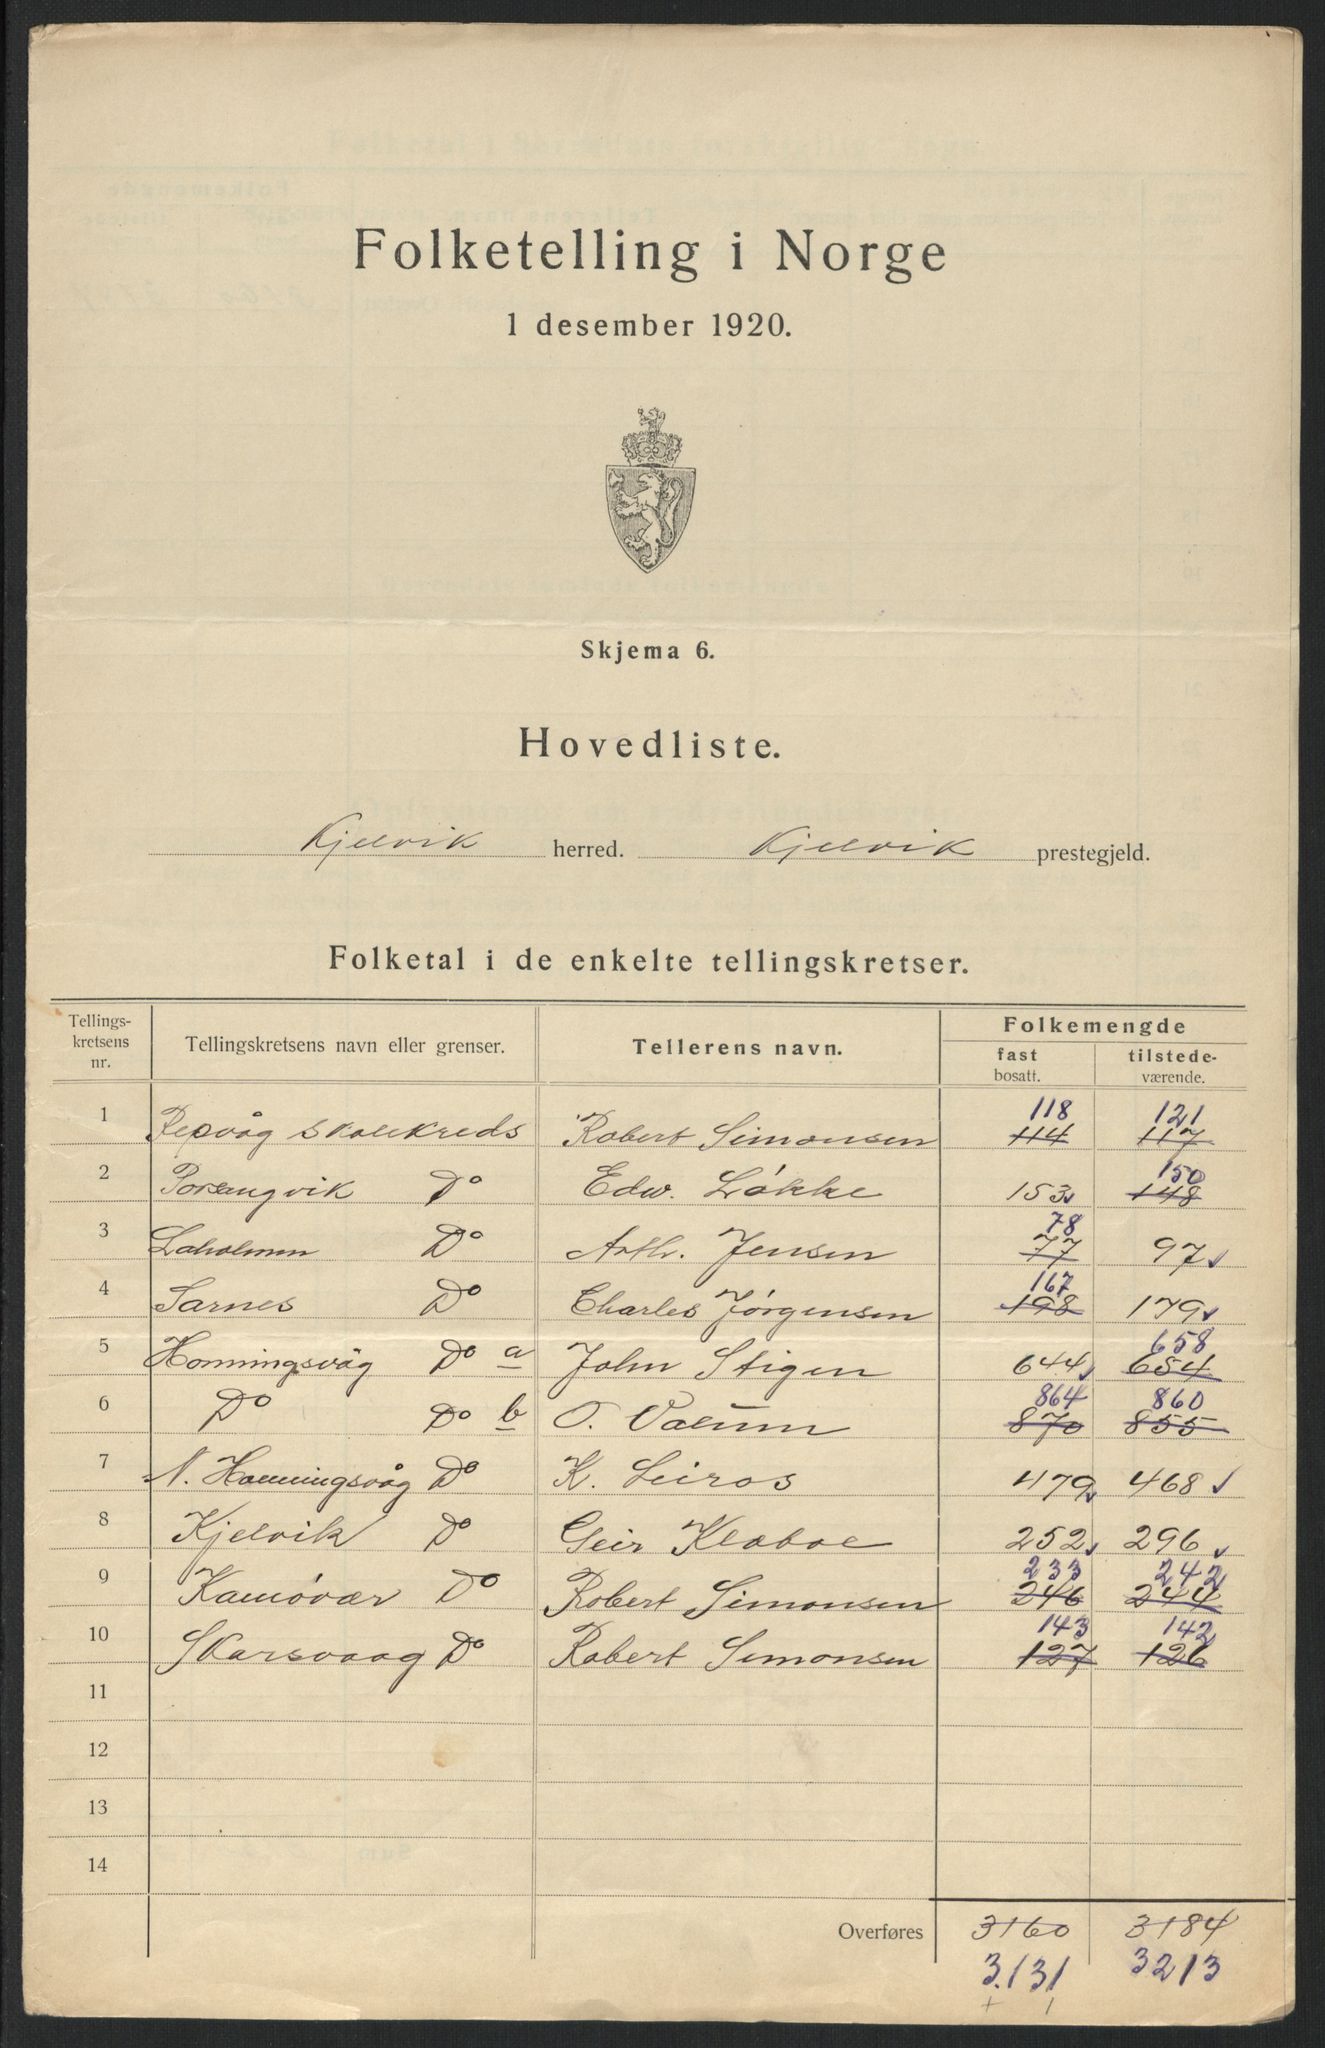 Folketelling i Norge
1 desember 1920.
Skjema 6.
Hovedliste.
Kjelvik herred. Kjelvik prestegjeld.
Folketal i de enkelte tellingskretser.
Tellings-
kretsens
nr.
Tellingskretsens navn eller grenser.
Tellerens navn.
Folkemengde
fast
bosatt.
tilstede-
værende.
118 121
1 Repvåg skolekreds Robert Simonsen 114 117
150
2 Porsangvik Do Edw. Løkke 153 148
78
3 Laholmen Do Arth. Jensen 77 97
167
4 Sarnes Do Charles Jørgensen 198 179
658
5 Honningsvåg Do a John Stigen 644 654
864 860
6 Do Do b O. Valum 870 855
7 N. Honningsvåg Do K. Leiros 479 468
8 Kjelvik Do Geir Kloboe 252 296
233 242
9 Kamøvær Do Robert Simonsen 246 244
143 142
10 Skarsvaag Do Robert Simonsen 127 126
11
12
13
14
Overføres 3160 3184
3.131 3213